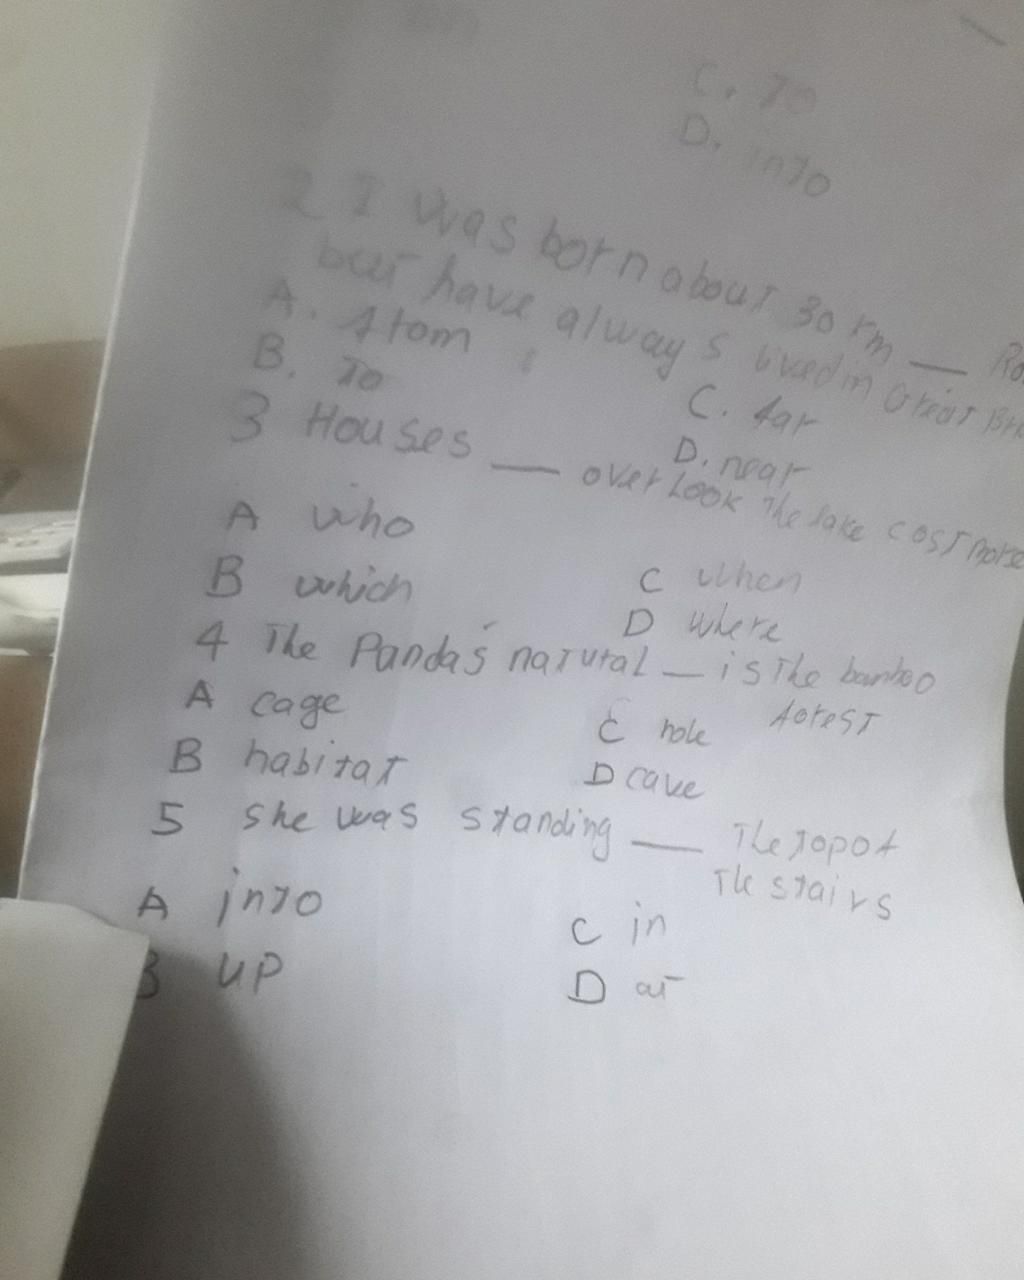 C. To
D. into
2 I was born about 30 km __
but have always lived in Great
A. from
B. To
C. far
D. near
3 Houses __ overlook The lake cost more
A who
B which
C when
D where
4 The Panda's natural __ is The bamboo
forest
A cage
B habitat
C hole
D cave
5 she was standing __ The top of
The stairs
A into
B up
C in
D at